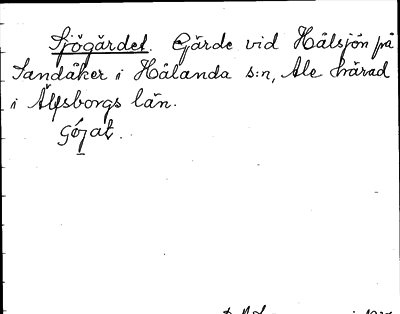 Sjögärdet. Gärde vid Hålsjön på
Sandåker i Hålanda s:n, Ale härad
i Älvsborgs län.